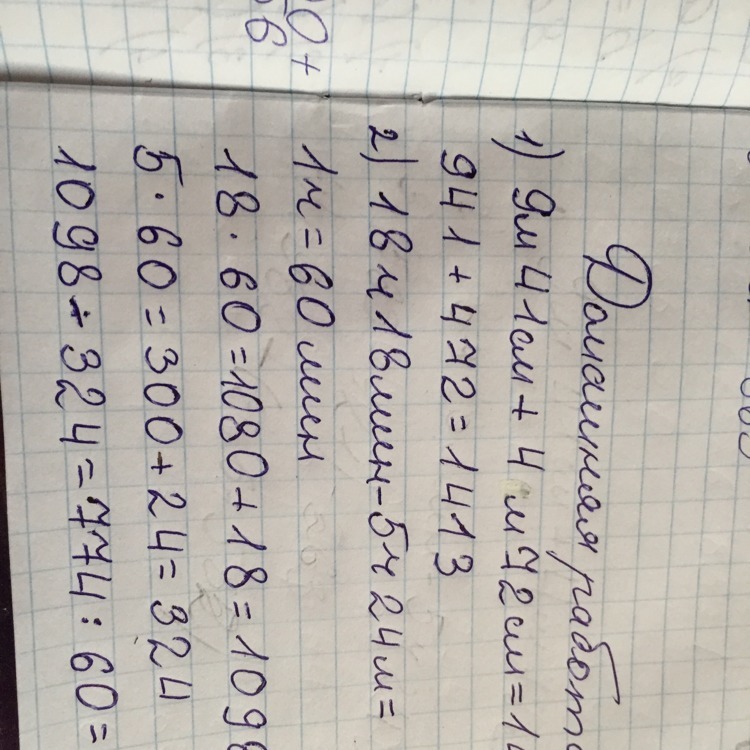 0+
6
Домашняя работ
1) 9м 41см + 4 м 72 см = 1
941 + 472 = 1413
2) 18 ч 18 мин - 5 ч 24 м =
1ч = 60 мин
18 · 60 = 1080 + 18 = 109
5 · 60 = 300 + 24 = 324
1098 - 324 = 774 : 60 =